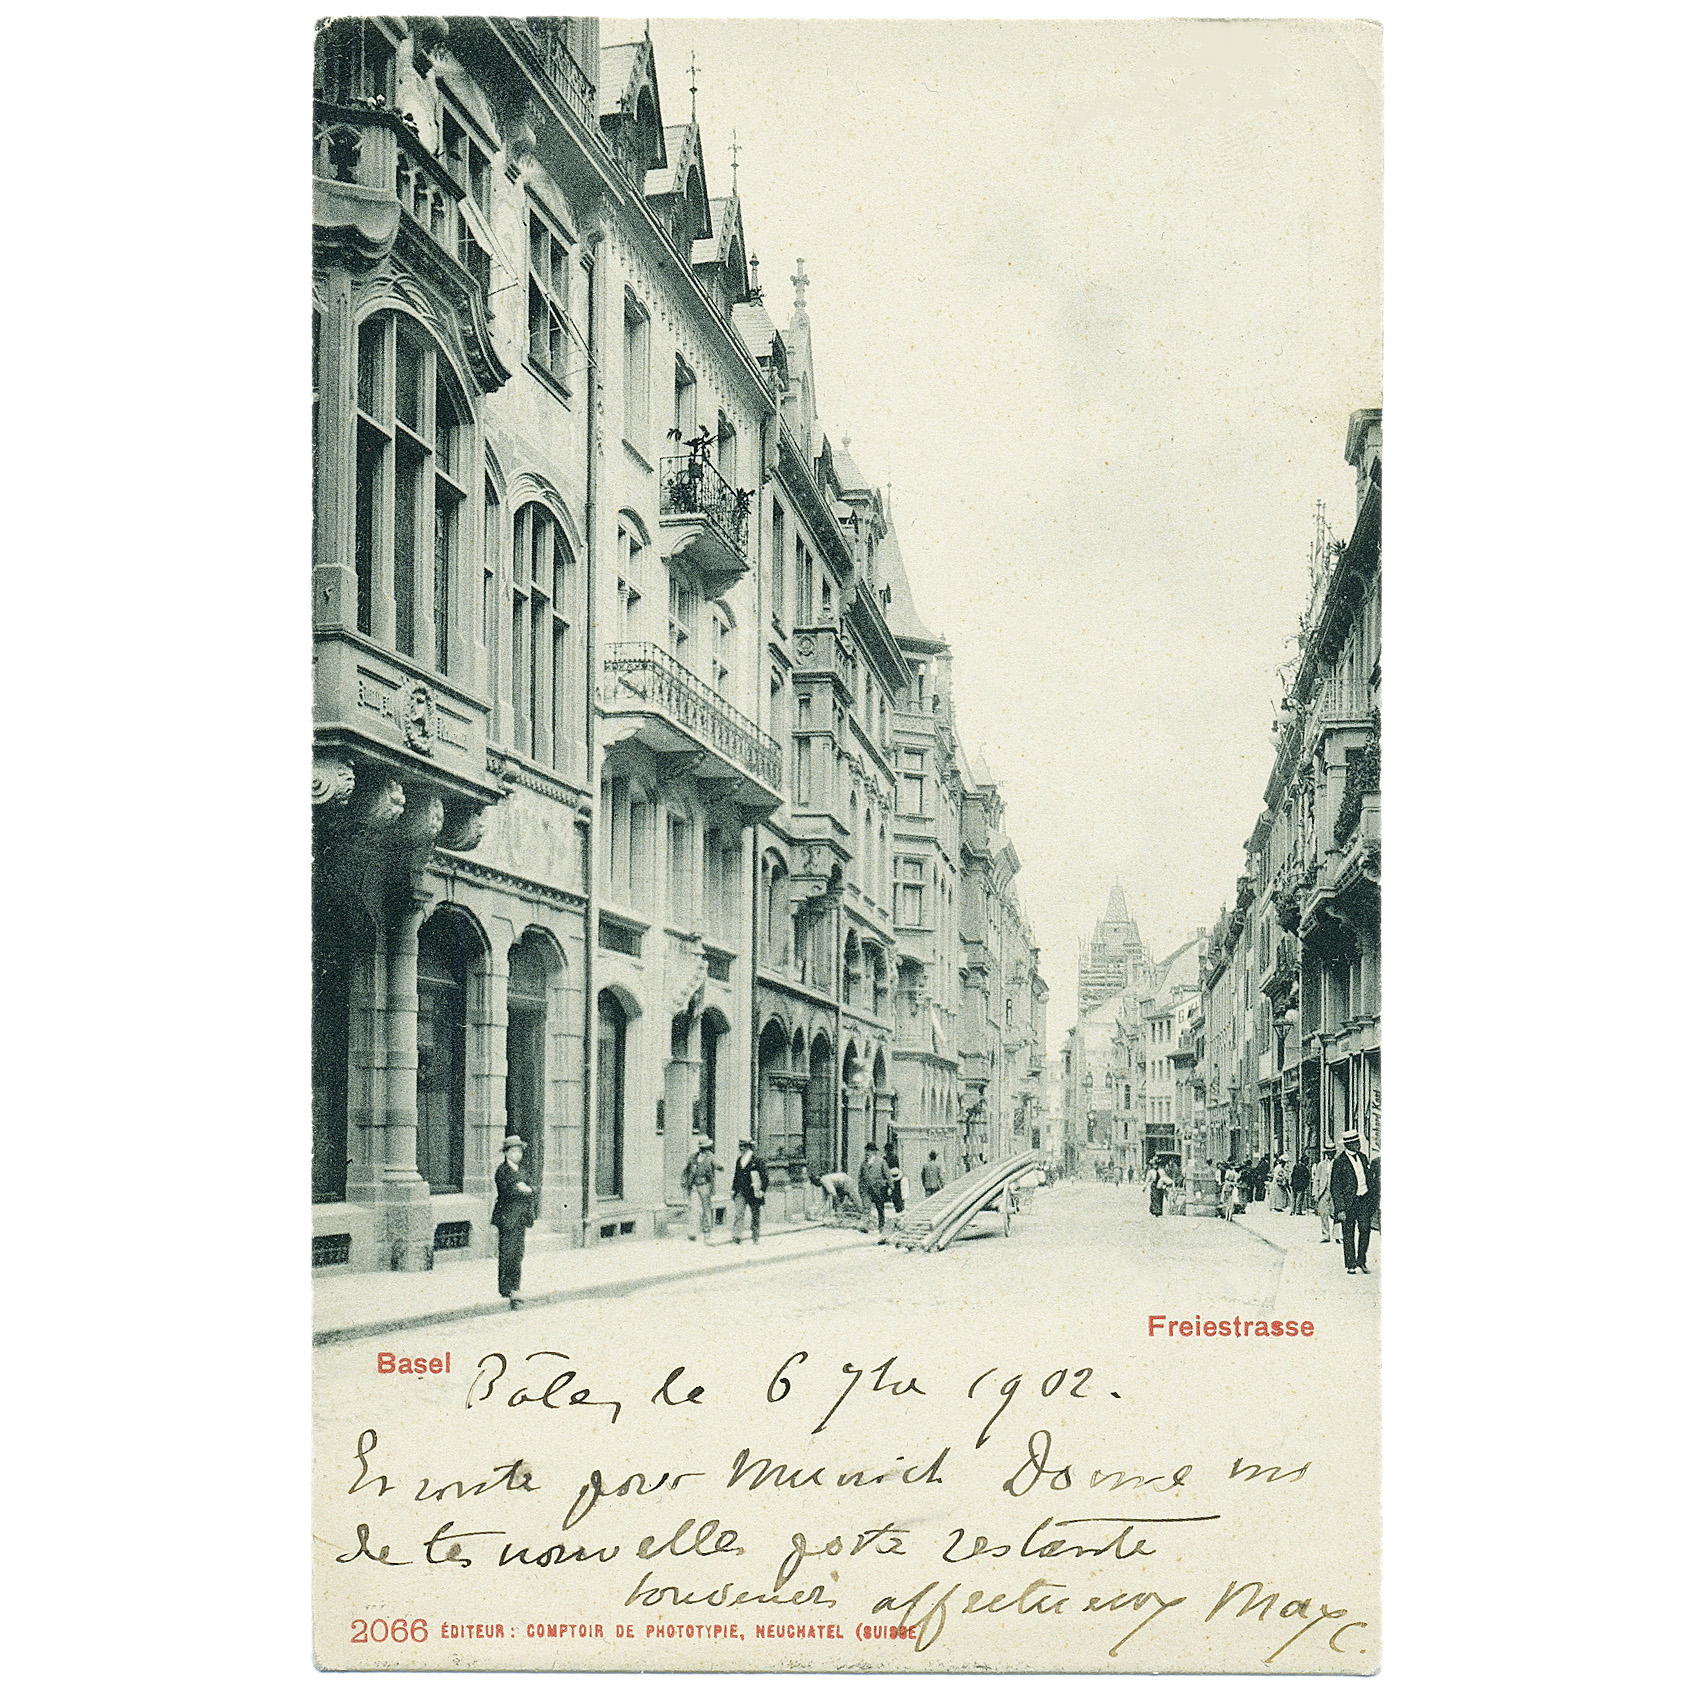 Freiestrasse
Basel
Bâle, le 6 7bre 1902.
En route pour Munich Donne moi
de tes nouvelles poste restante
souvenirs affectueux Max C.
2066 ÉDITEUR: COMPTOIR DE PHOTOTYPIE, NEUCHATEL (SUISSE)